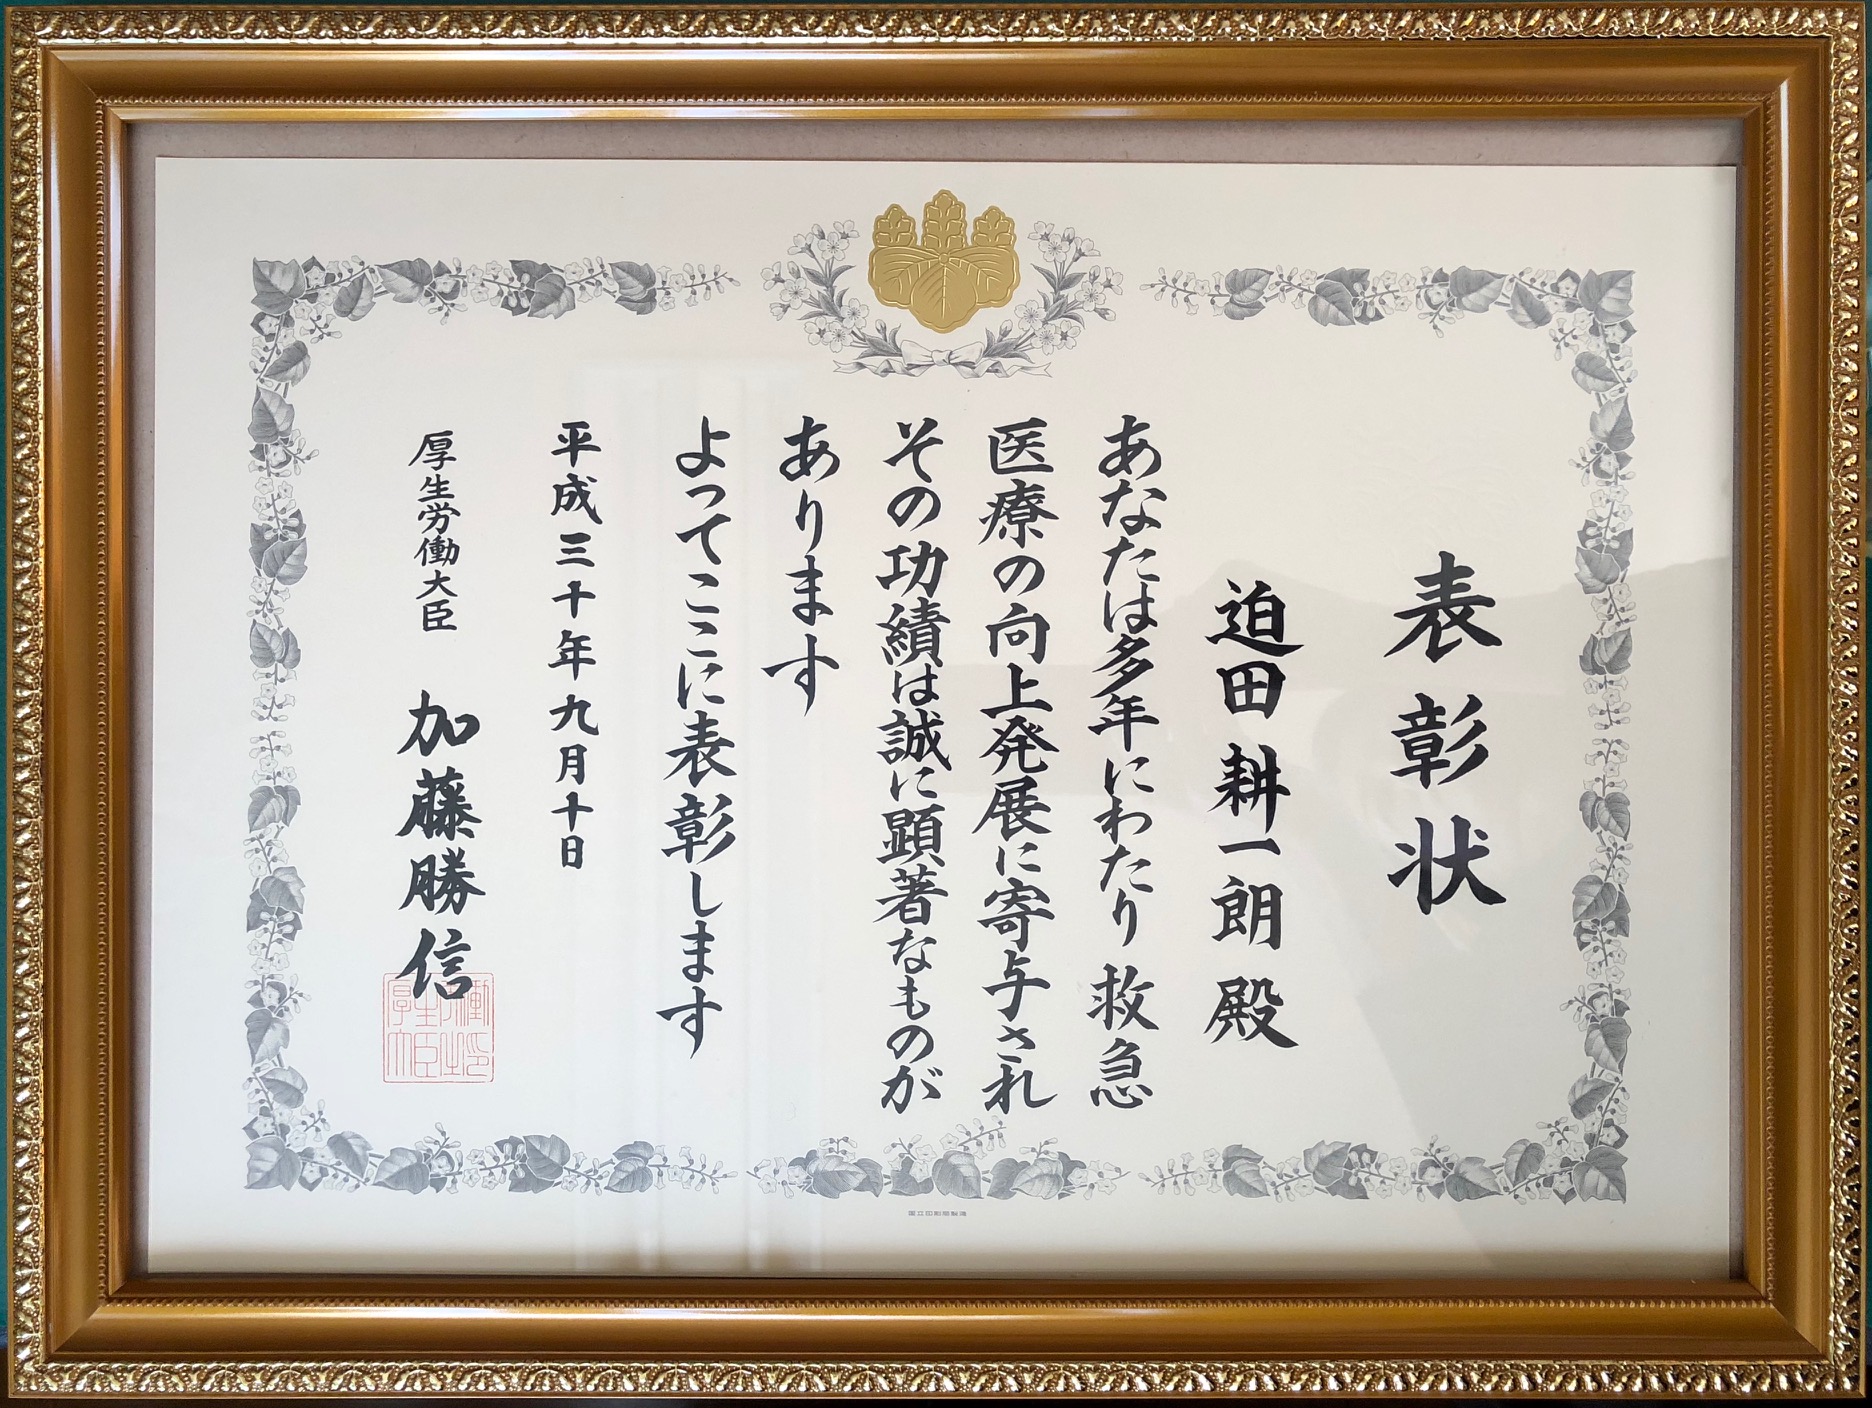 表彰状
迫田耕一朗殿
あなたは多年にわたり救急
医療の向上発展に寄与され
その功績は誠に顕著なものが
あります
よってここに表彰します
平成三十年九月十日
厚生労働大臣 加藤勝信
国立印刷局製造